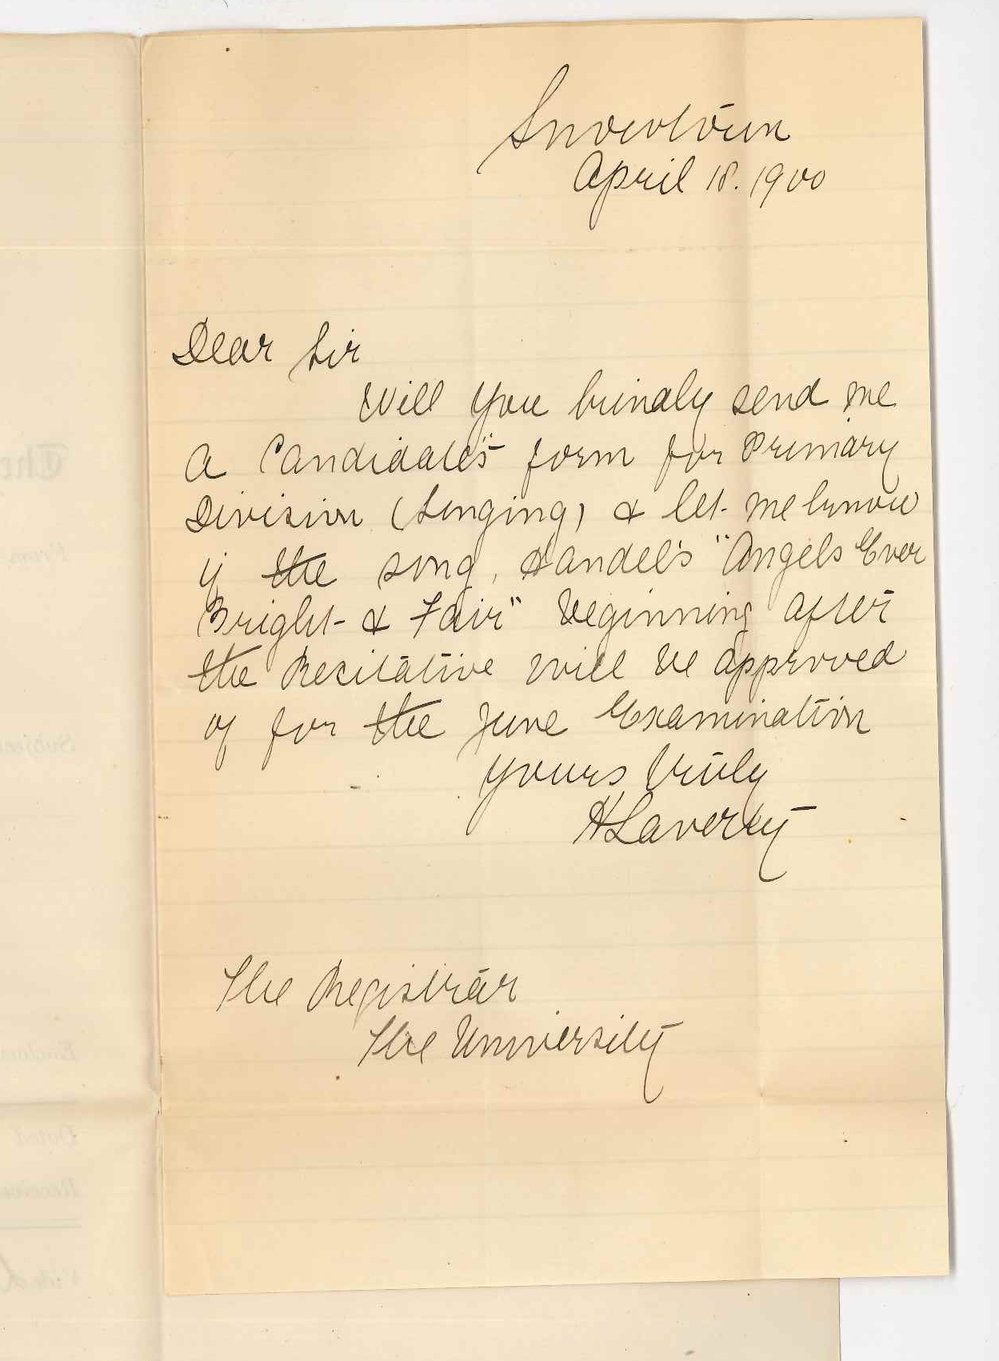 Snowtown
April 18. 1900
Dear Sir
Will you kindly send me
a Candidate's form for Primary
Division (Singing) & let me know
if the song, Handel's "Angels Ever
Bright & Fair" beginning after
the Recitative will be approved
of for the June Examination
Yours truly
H Laverty
The Registrar
The University